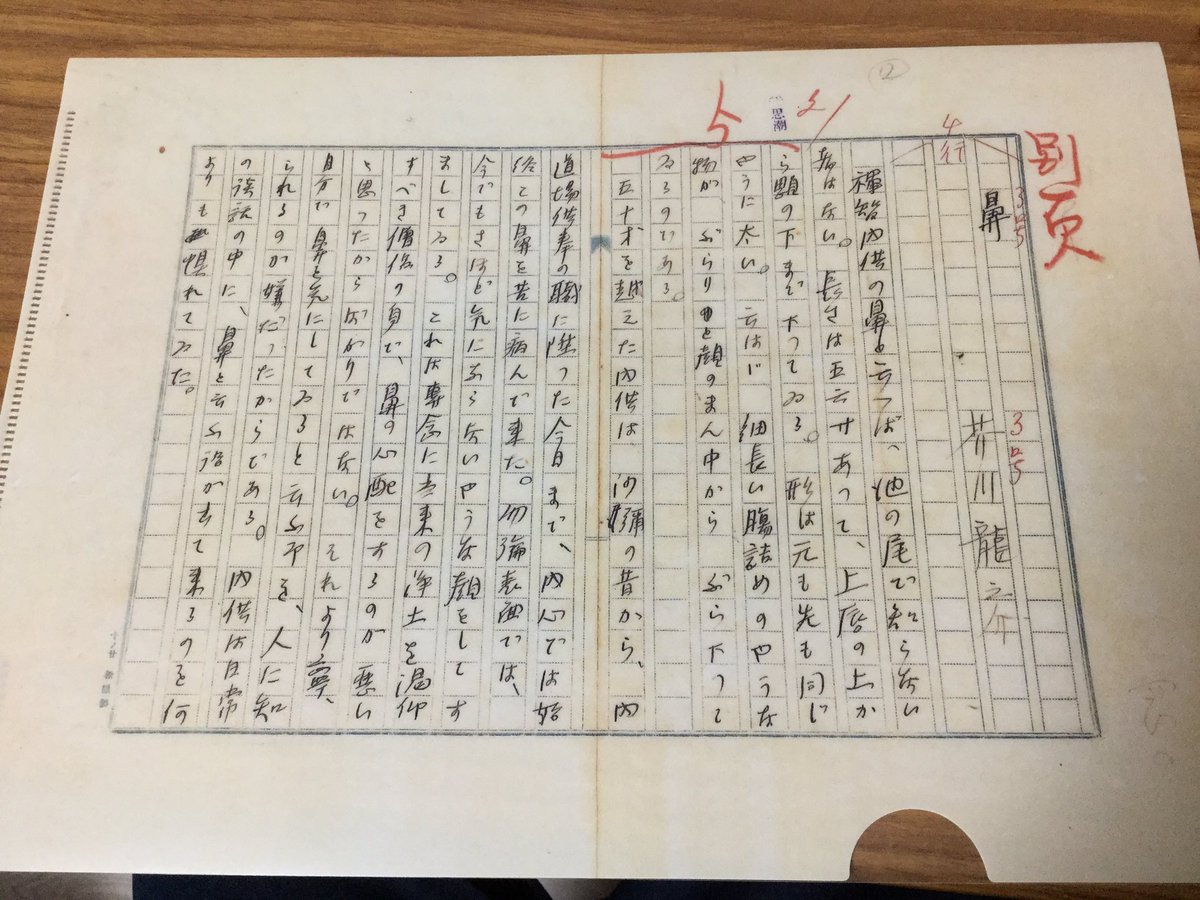 別頁
3号
3号
4行
12
思潮
鼻
芥川龍之介
禅智内供の鼻と云へば、池の尾で知らない
者はない。長さは五六寸あつて、上唇の上か
ら顋の下まで下つてゐる。形は元も先も同じ
やうに太い。云はゞ 細長い腸詰めのやうな
物が、ぶらりと顔のまん中から ぶら下つて
ゐるのである。
五十才を越えた内供は、沙彌の昔から、内
道場供奉の職に陞つた今日まで、内心では始
終この鼻を苦に病んで来た。勿論表面では、
今でもさほど気にならないやうな顔をしてす
ましてゐる。これは専念に当来の浄土を渇仰
すべき僧侶の身で、鼻の心配をするのが悪い
と思つたからばかりではない。それより寧、
自分で鼻を気にしてゐると云ふ事を、人に知
られるのが嫌だつたからである。内供は日常
の談話の中に、鼻と云ふ語が出て来るのを何
よりも惧れてゐた。